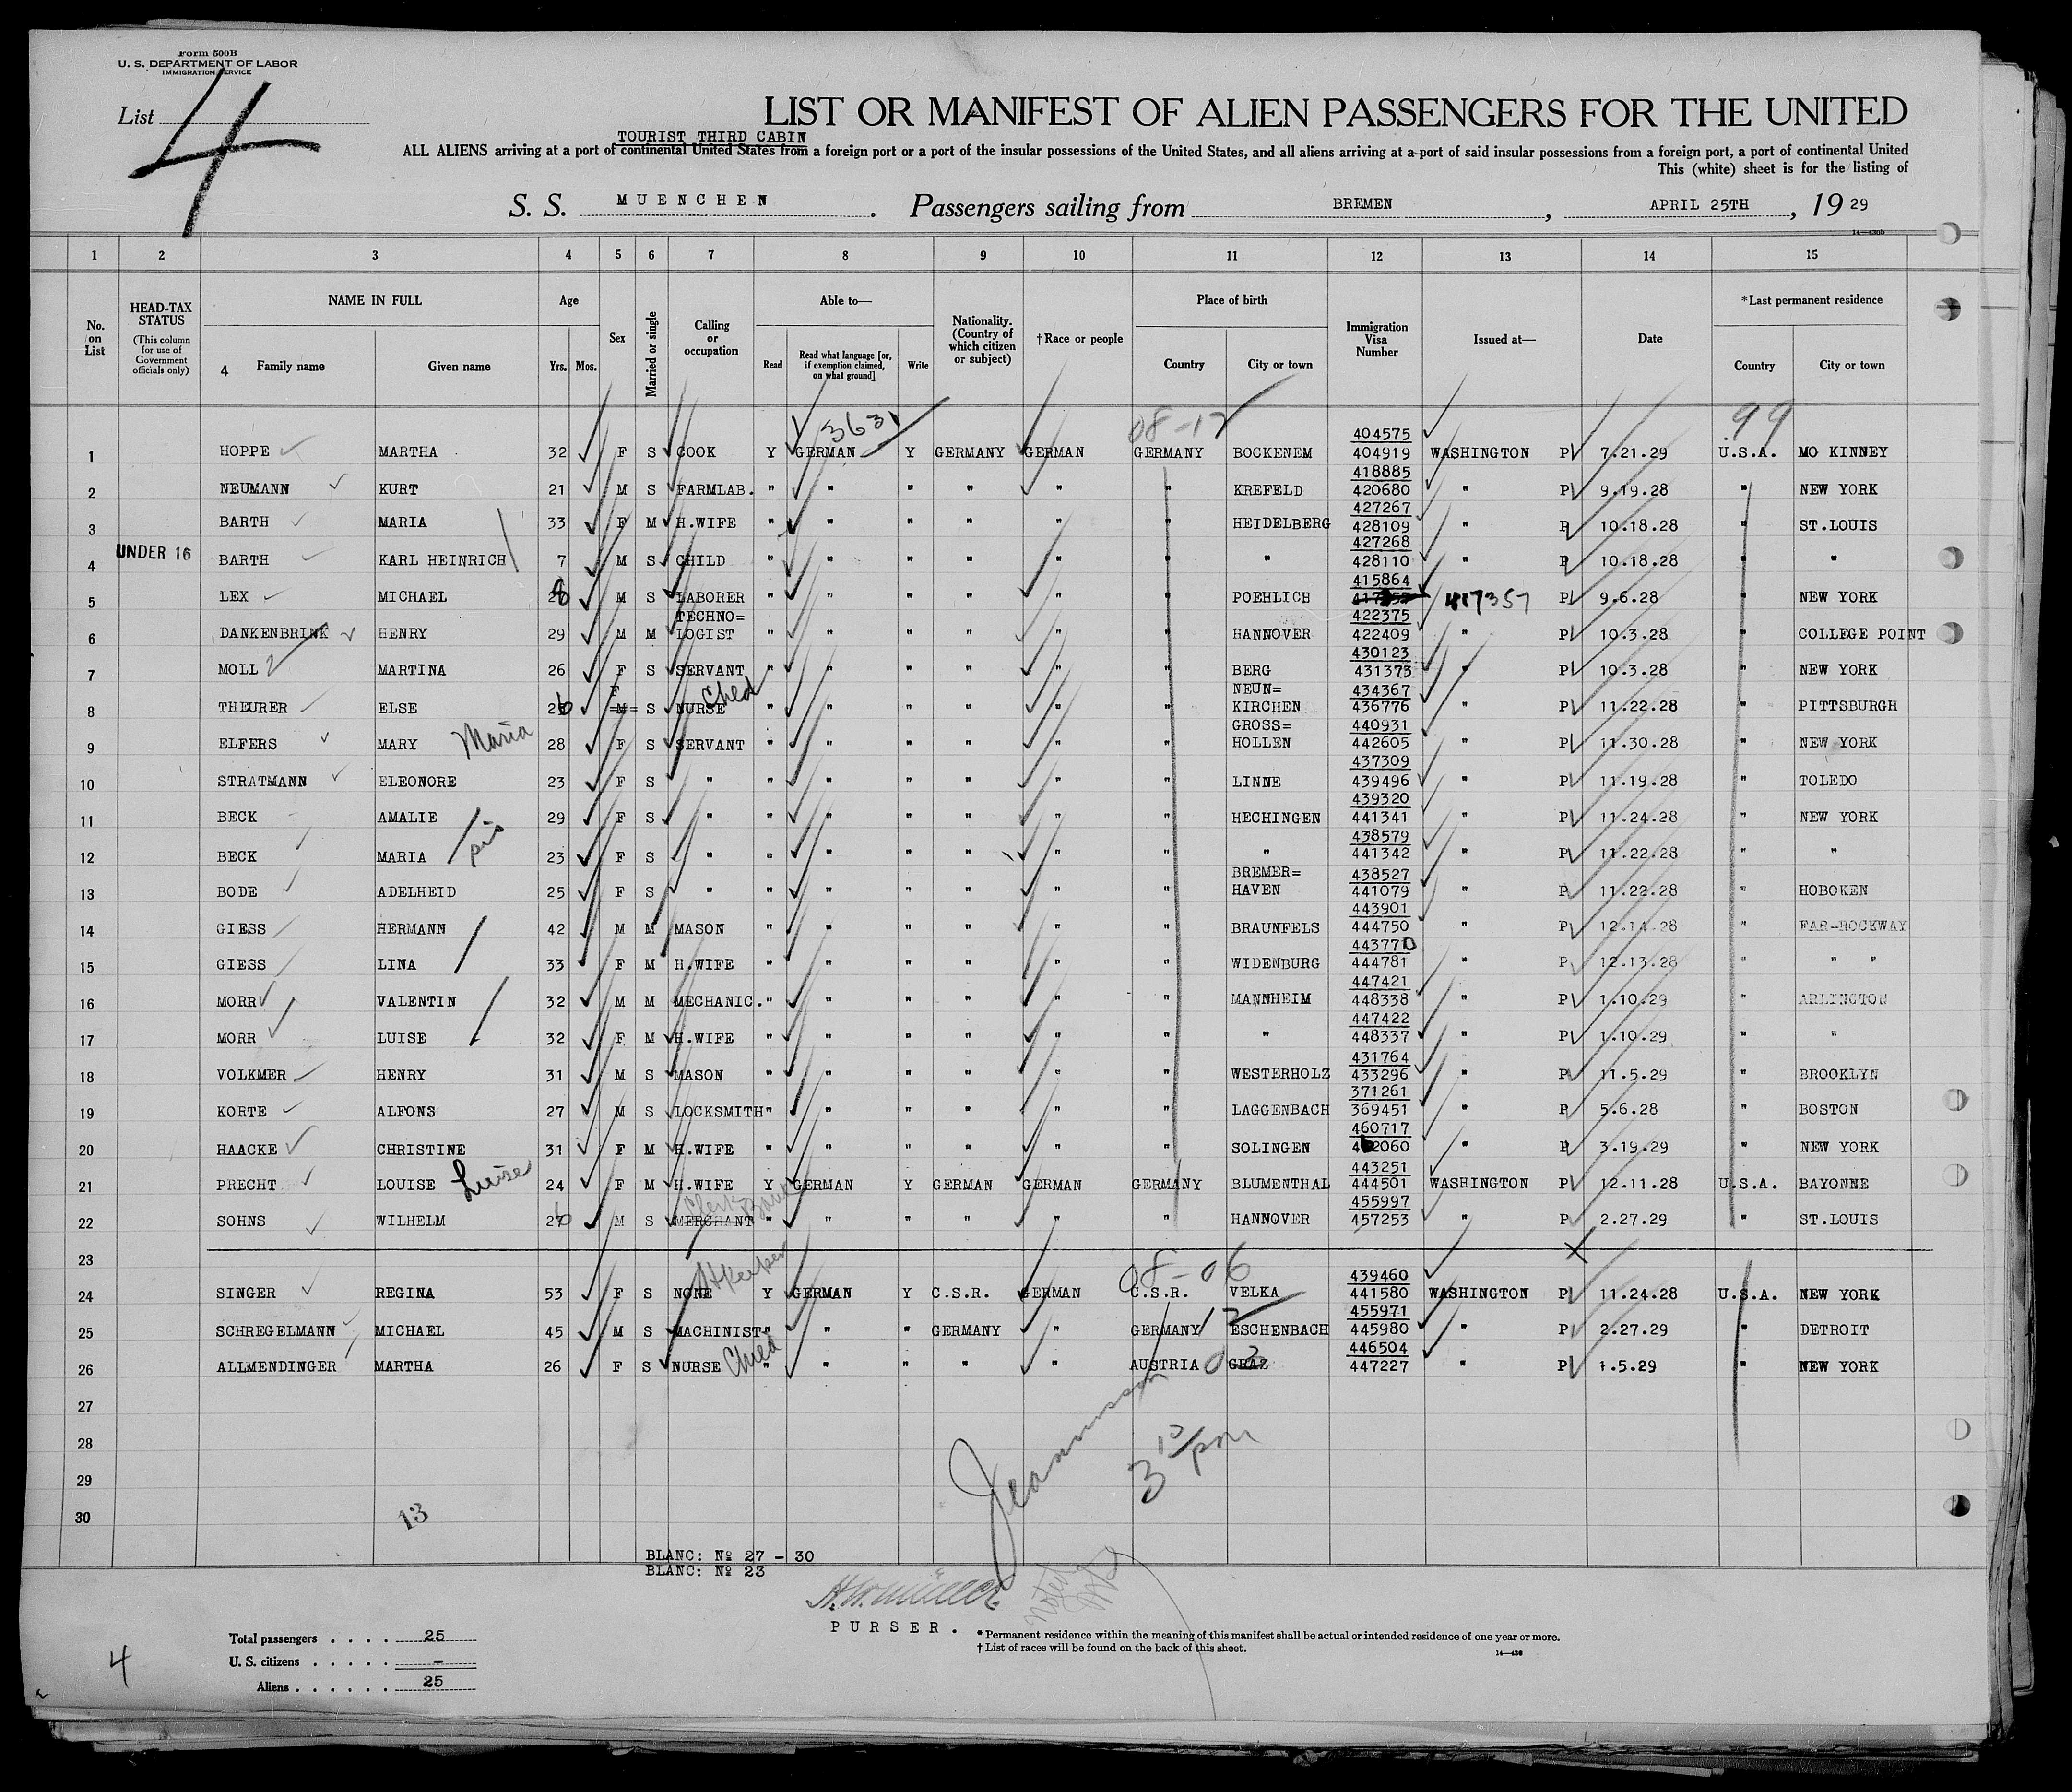 Form 500B
U. S. DEPARTMENT OF LABOR
IMMIGRATION SERVICE
List 4
LIST OR MANIFEST OF ALIEN PASSENGERS FOR THE UNITED
TOURIST THIRD CABIN
ALL ALIENS arriving at a port of continental United States from a foreign port or a port of the insular possessions of the United States, and all aliens arriving at a port of said insular possessions from a foreign port, a port of continental United
This (white) sheet is for the listing of
S. S. MUENCHEN. Passengers sailing from BREMEN, APRIL 25TH, 1929
14—430b
1 2 3 4 5 6 7 8 9 10 11 12 13 14 15
No. on List
HEAD-TAX STATUS
(This column for use of Government officials only)
NAME IN FULL
4 Family name Given name
Age
Yrs. Mos.
Sex
Married or single
Calling or occupation
Able to—
Read Read what language [or, if exemption claimed, on what ground] Write
Nationality. (Country of which citizen or subject)
†Race or people
Place of birth
Country City or town
Immigration Visa Number
Issued at—
Date
*Last permanent residence
Country City or town
3631 08-17 99
404575
1 HOPPE MARTHA 32 F S COOK Y GERMAN Y GERMANY GERMAN GERMANY BOCKENEM 404919 WASHINGTON P 7.21.29 U.S.A. MO KINNEY
418885
2 NEUMANN KURT 21 M S FARMLAB. " " " " " " KREFELD 420680 " P 9.19.28 " NEW YORK
427267
3 BARTH MARIA 33 F M H.WIFE " " " " " " HEIDELBERG 428109 " P 10.18.28 " ST.LOUIS
427268
4 UNDER 16 BARTH KARL HEINRICH 7 M S CHILD " " " " " " " 428110 " P 10.18.28 " "
415864
5 LEX MICHAEL 28 M S LABORER " " " " " " POEHLICH 417357 P 9.6.28 " NEW YORK
TECHNO= 422375
6 DANKENBRINK HENRY 29 M M LOGIST " " " " " " HANNOVER 422409 " P 10.3.28 " COLLEGE POINT
430123
7 MOLL MARTINA 26 F S SERVANT " " " " " " BERG 431373 " P 10.3.28 " NEW YORK
F Child NEUN= 434367
8 THEURER ELSE 26 M S NURSE " " " " " " KIRCHEN 436776 " P 11.22.28 " PITTSBURGH
GROSS= 440931
9 ELFERS MARY Maria 28 F S SERVANT " " " " " " HOLLEN 442605 " P 11.30.28 " NEW YORK
437309
10 STRATMANN ELEONORE 23 F S " " " " " " " LINNE 439496 " P 11.19.28 " TOLEDO
439320
11 BECK AMALIE 29 F S " " " " " " " HECHINGEN 441341 " P 11.24.28 " NEW YORK
sis 438579
12 BECK MARIA 23 F S " " " " " " " " 441342 " P 11.22.28 " "
BREMER= 438527
13 BODE ADELHEID 25 F S " " " " " " " HAVEN 441079 " P 11.22.28 " HOBOKEN
443901
14 GIESS HERMANN 42 M M MASON " " " " " " BRAUNFELS 444750 " P 12.14.28 " FAR-ROCKWAY
443770
15 GIESS LINA 33 F M H.WIFE " " " " " " WIDENBURG 444781 " P 12.13.28 " " "
447421
16 MORR VALENTIN 32 M M MECHANIC. " " " " " " MANNHEIM 448338 " P 1.10.29 " ARLINGTON
447422
17 MORR LUISE 32 F M H.WIFE " " " " " " " 448337 " P 1.10.29 " "
431764
18 VOLKMER HENRY 31 M S MASON " " " " " " WESTERHOLZ 433296 " P 11.5.29 " BROOKLYN
371261
19 KORTE ALFONS 27 M S LOCKSMITH " " " " " " LAGGENBACH 369451 " P 5.6.28 " BOSTON
460717
20 HAACKE CHRISTINE 31 F M H.WIFE " " " " " " SOLINGEN 462060 " P 3.19.29 " NEW YORK
443251
21 PRECHT LOUISE Luise 24 F M H.WIFE Y GERMAN Y GERMAN GERMAN GERMANY BLUMENTHAL 444501 WASHINGTON P 12.11.28 U.S.A. BAYONNE
Clerk Bank 455997
22 SOHNS WILHELM 26 M S MERCHANT " " " " " " HANNOVER 457253 " P 2.27.29 " ST.LOUIS
23
Hkeeper 08-06 439460
24 SINGER REGINA 53 F S NONE Y GERMAN Y C.S.R. GERMAN C.S.R. VELKA 441580 WASHINGTON P 11.24.28 U.S.A. NEW YORK
455971
25 SCHREGELMANN MICHAEL 45 M S MACHINIST " " " GERMANY " GERMANY 17 ESCHENBACH 445980 " P 2.27.29 " DETROIT
446504
26 ALLMENDINGER MARTHA 26 F S NURSE Child " " " " " AUSTRIA 03 GRAZ 447227 " P 1.5.29 " NEW YORK
27
28
29
30
3 10/pm
13
BLANC: № 27 - 30
BLANC: № 23
H. W. Müller
noted
PURSER.
*Permanent residence within the meaning of this manifest shall be actual or intended residence of one year or more.
†List of races will be found on the back of this sheet.
14—430
Total passengers . . . . 25
U. S. citizens . . . . . –
Aliens . . . . . . 25
4